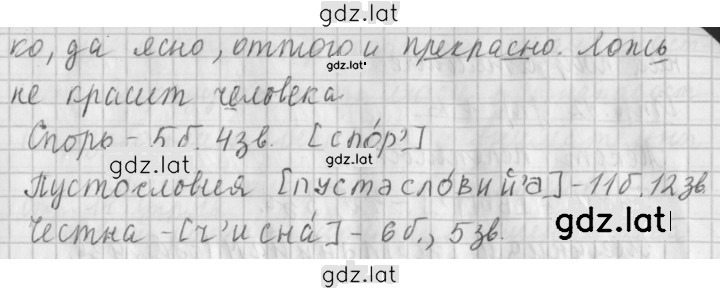 gdz.lat
ко, да ясно, оттого и прекрасно. Ложь
gdz.lat
не красит человека
Спорь - 5б. 4зв. [спо́р']
gdz.lat
Пустословия [пустасло́вий'а] - 11б. 12зв
gdz.lat
Честна - [ч'исна́] - 6б., 5зв.
gdz.lat